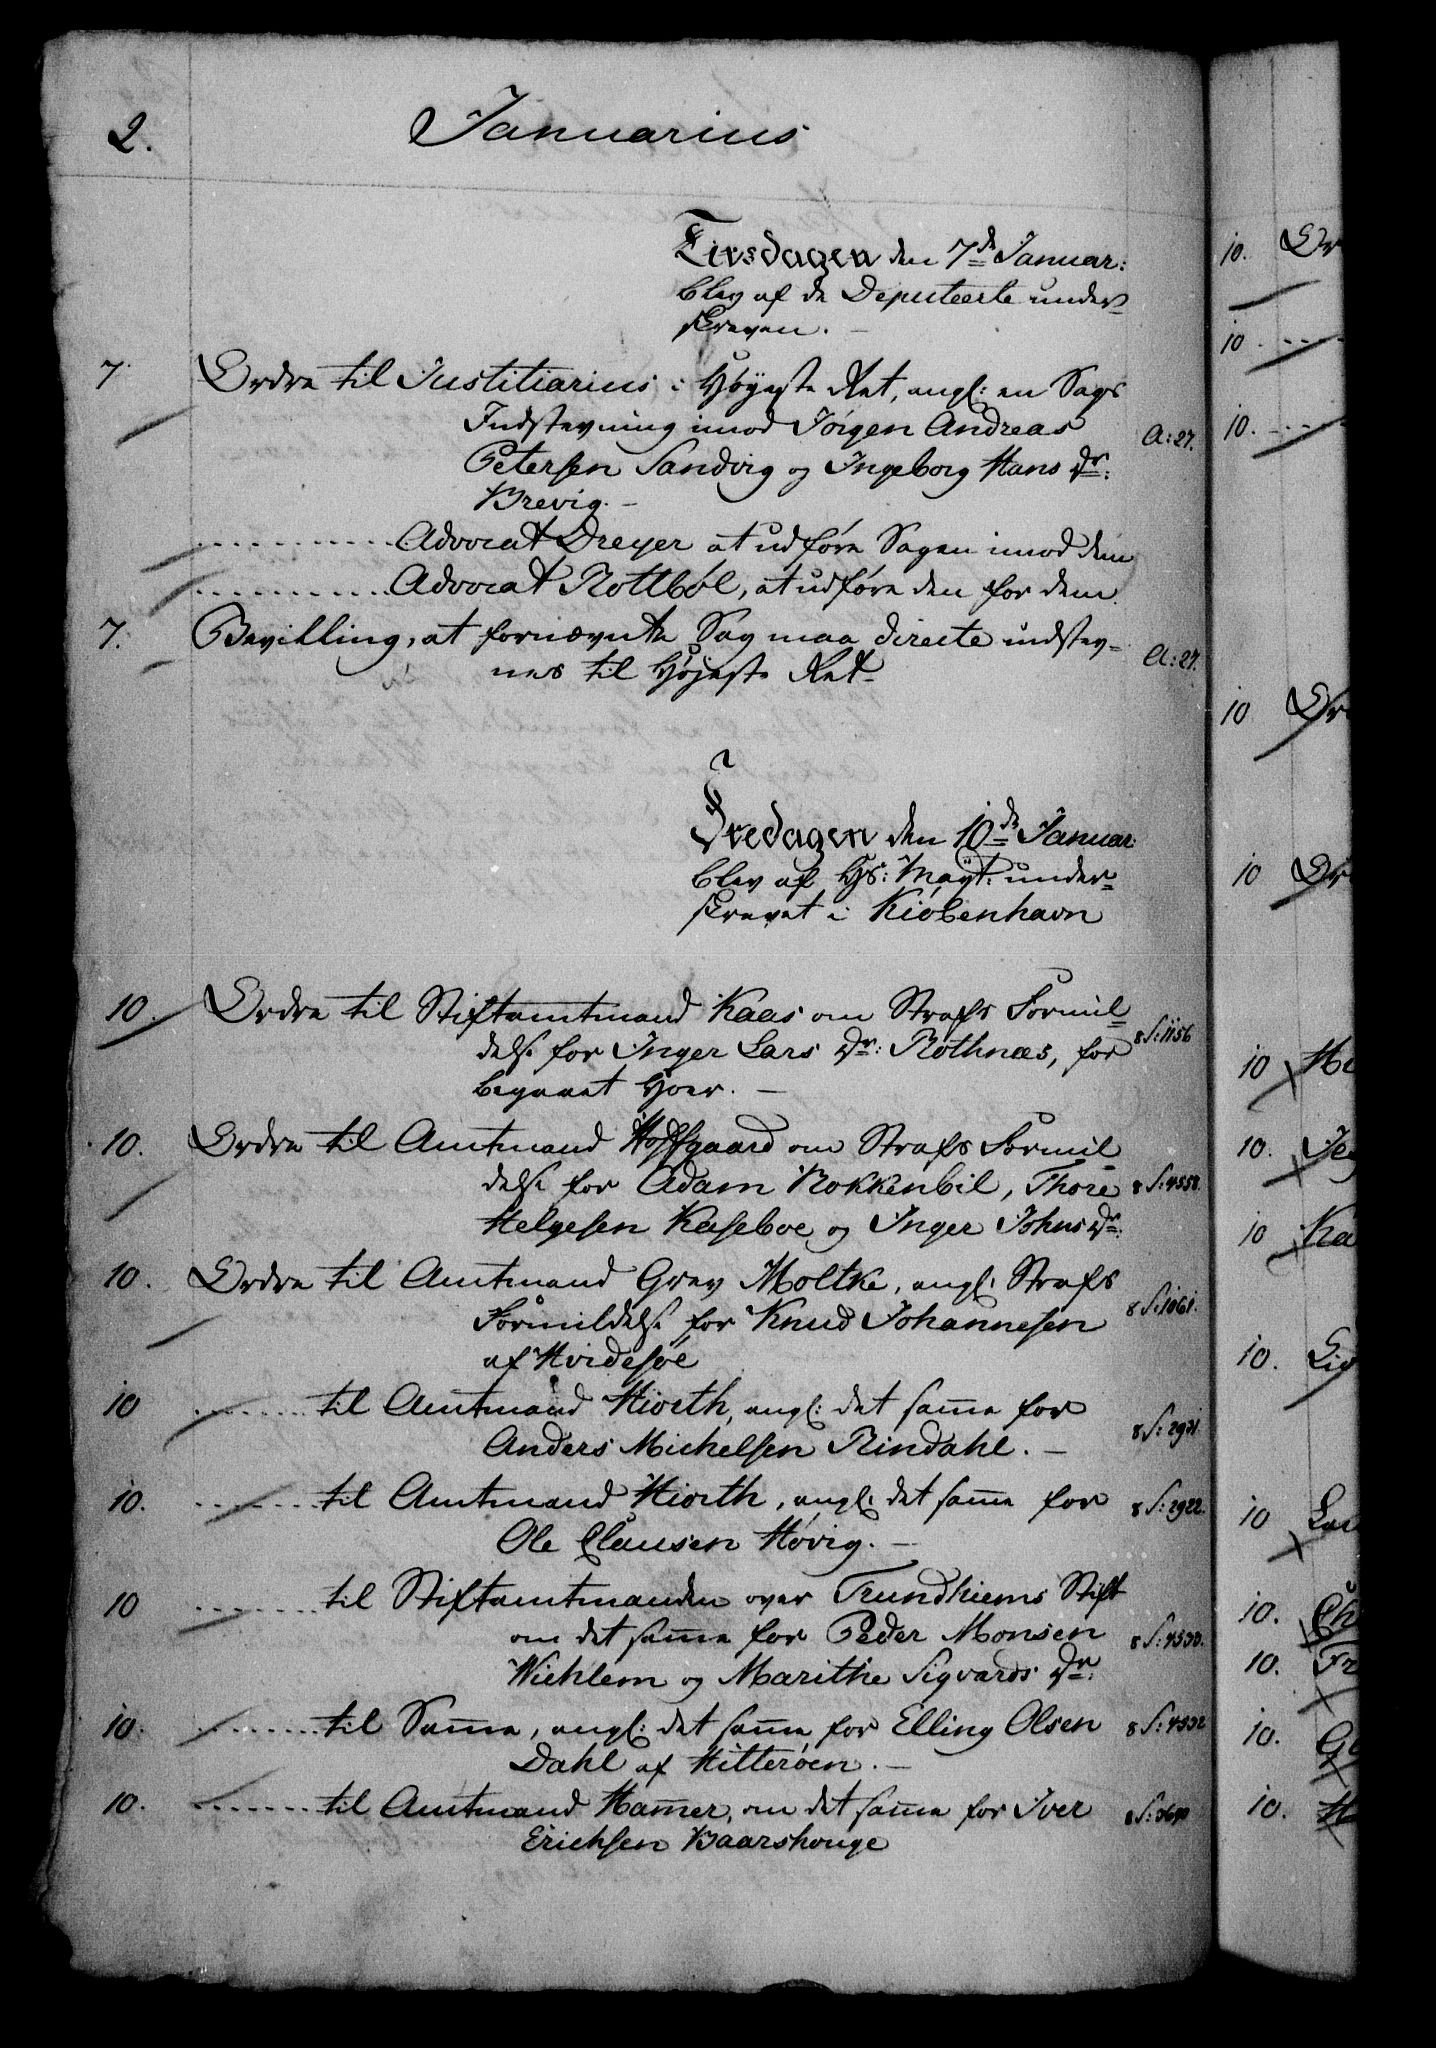 2. Januarius
Tirsdagen den 7de Januar:
blev af de Deputeerte under-
skreven. –
7. Ordre til Justitiarius i Høÿeste Ret, angl: en Sags
Indstevning imod Jørgen Andreas A:27.
Petersen Sandvig og Ingeborg Hans Dr:
Brevig. –
. . . . . . . . . . Advocat Dreyer at udføre Sagen imod dem
. . . . . . . . . . Advocat Rottbøl, at udføre den for dem.
7. Bevilling, at fornævnte Sag maa directe indstev-
nes til Høÿeste Ret – A:27.
Fredagen den 10de Januar:
blev af Hs: Mayt: under-
skrevet i Kiøbenhavn
10. Ordre til Stiftamtmand Kaas om Strafs Formil-
delse for Inger Lars Dr: Rothnæs, for 8 S:1156
begaaet Hoer. –
10. Ordre til Amtmand Hoffgaard om Strafs Formil-
delse for Adam Rokkenbil, Thore 8 S:4558.
Helgesen Kaseboe og Inger Johns Dr:
10. Ordre til Amtmand Grev Moltke, angl: Strafs
Formildelse for Knud Johannesen 8 S:1061.
af Hvidesøe
10 . . . . . . . til Amtmand Hiorth, angl: det samme for
Anders Michelsen Rindahl. – 8 S:2921
10. . . . . . . . til Amtmand Hiorth, angl: det samme for 8 S:2922.
Ole Clausen Høvig. –
10 . . . . . . . til Stiftamtmanden over Trundhiems Stift
om det samme for Peder Monsen 8 S:4530.
Wichlem og Marithe Sigvards Dr:
10. . . . . . . . til Samme, angl: det samme for Elling Olsen 8 S:4532
Dahl af Hitterøen. –
10. . . . . . . . til Amtmand Hamer, om det samme for Iver 8 S:3690
Erichsen Baarshouge
10. Or
10. . . .
10. . . .
10 Or
10 Or
10 He
10. Jeg
10 Ka
10. Liv
10 La
10. Ch
10. Fr
10. G
10. H